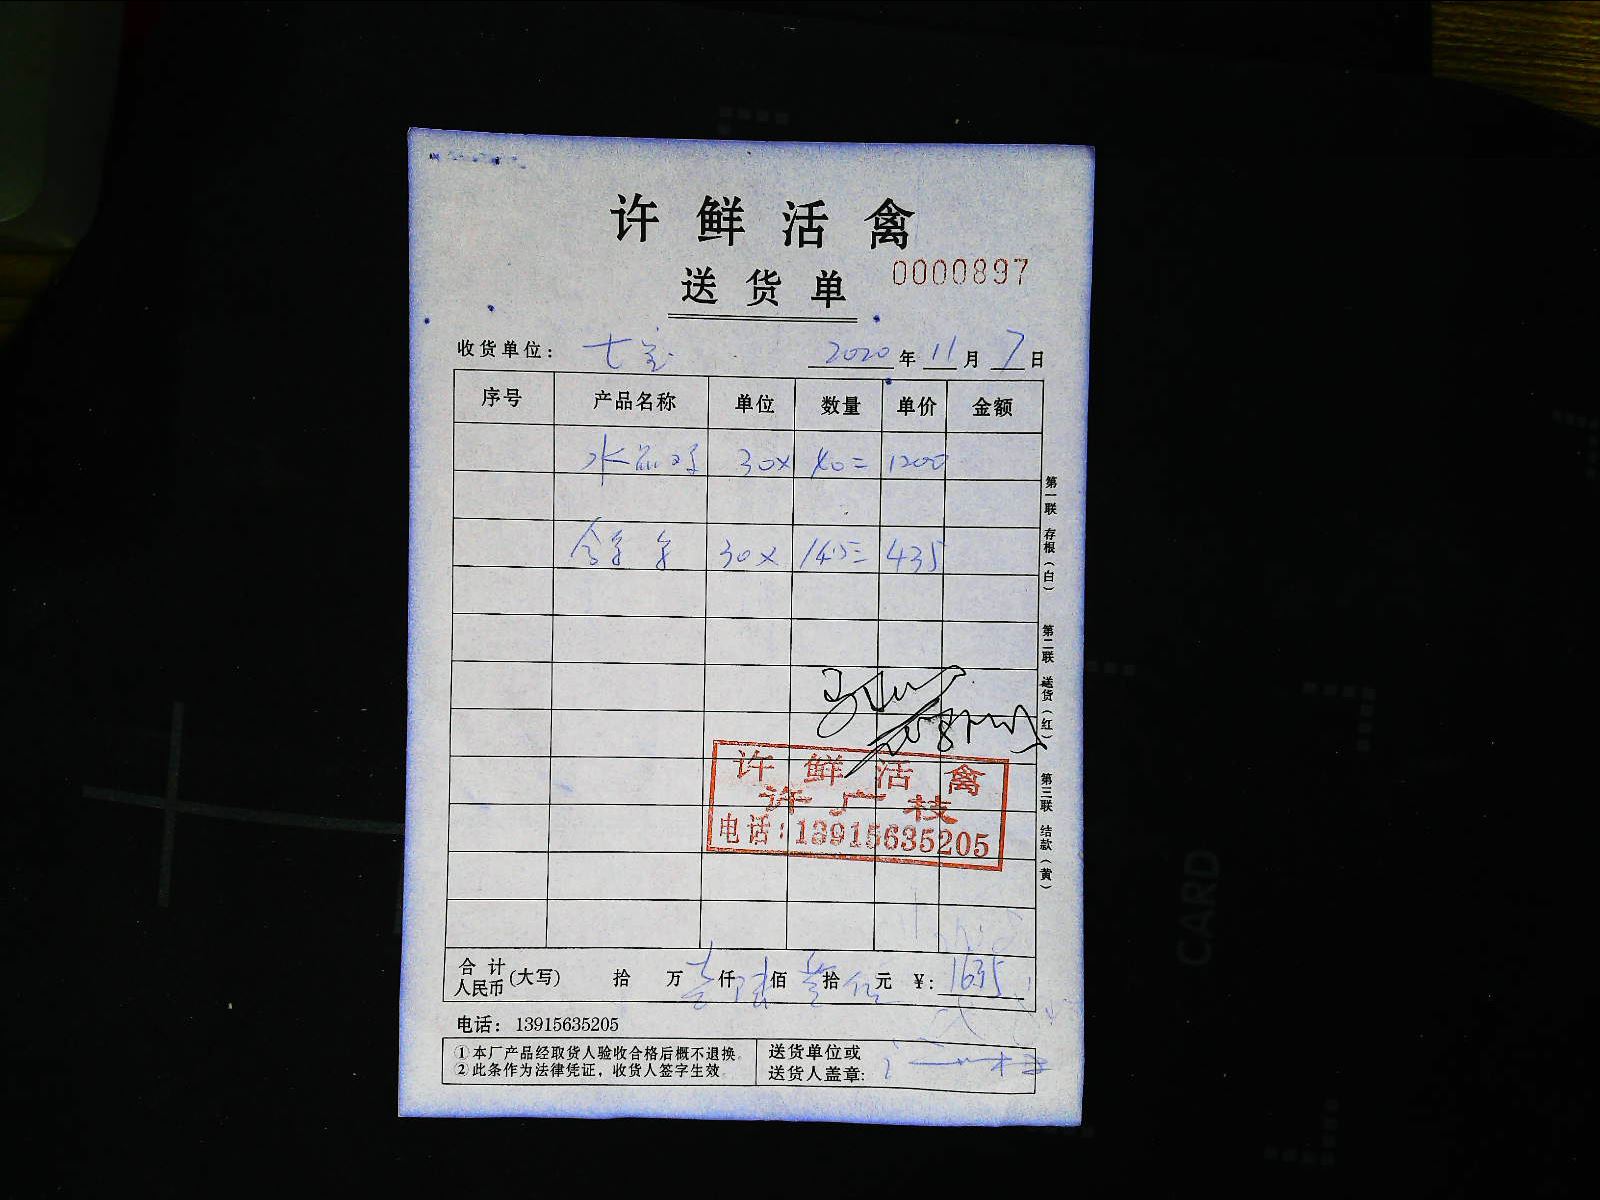 许鲜活禽
送货单
0000897
收货单位： 七宝 2020年11月7日
序号 产品名称 单位 数量 单价 金额
水晶 30× 40= 1200
30× 14.5= 435
第一联 存根（白） 第二联 送货（红） 第三联 结款（黄）
许鲜活禽
许广枝
电话：13915635205
合计人民币(大写) 拾 万 壹 仟 陆 佰 叁 拾 伍 元 ¥：1635
电话：13915635205
①本厂产品经取货人验收合格后概不退换。
②此条作为法律凭证，收货人签字生效。
送货单位或
送货人盖章：
CARD